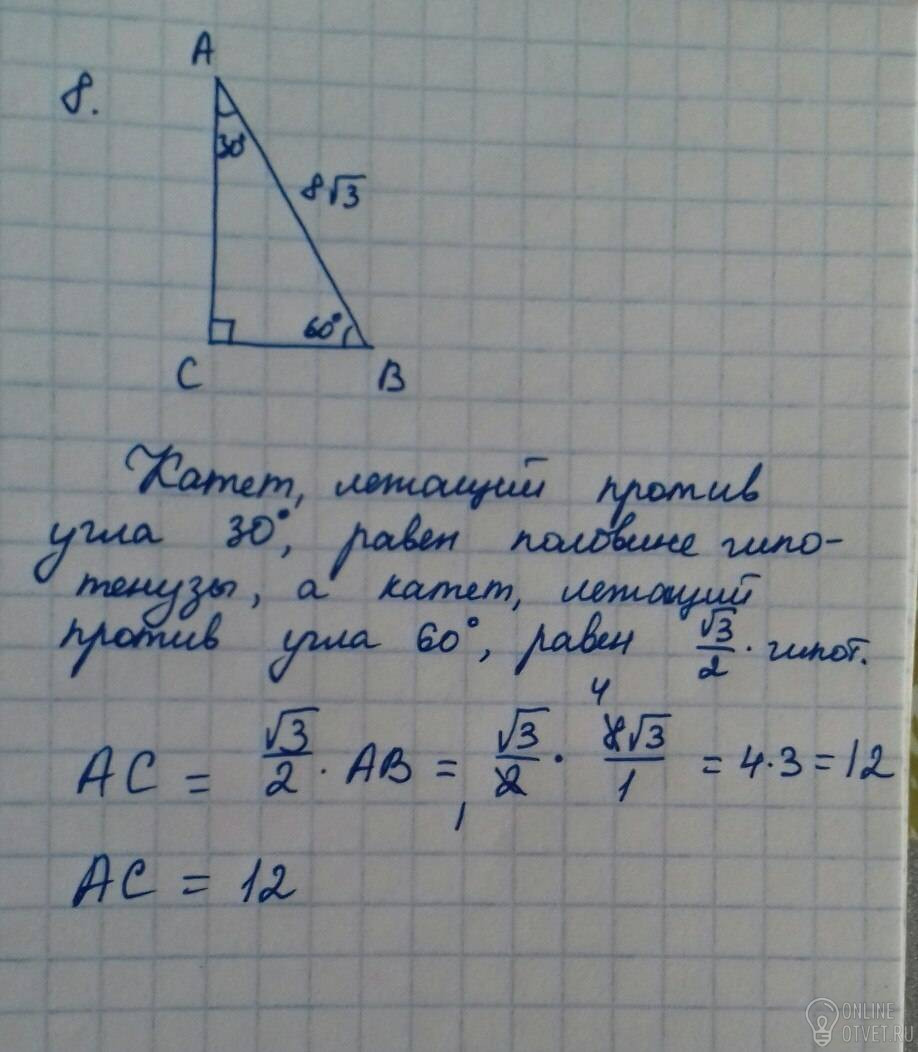 8.
A
30°
8√3
60°
C
B
Катет, лежащий против
угла 30°, равен половине гипо-
тенузы, а катет, лежащий
против угла 60°, равен √3/2 · гипот.
AC = √3/2 · AB = √3/2 · 8√3/1 = 4·3 = 12
4
1
AC = 12
ONLINE
OTVET.RU